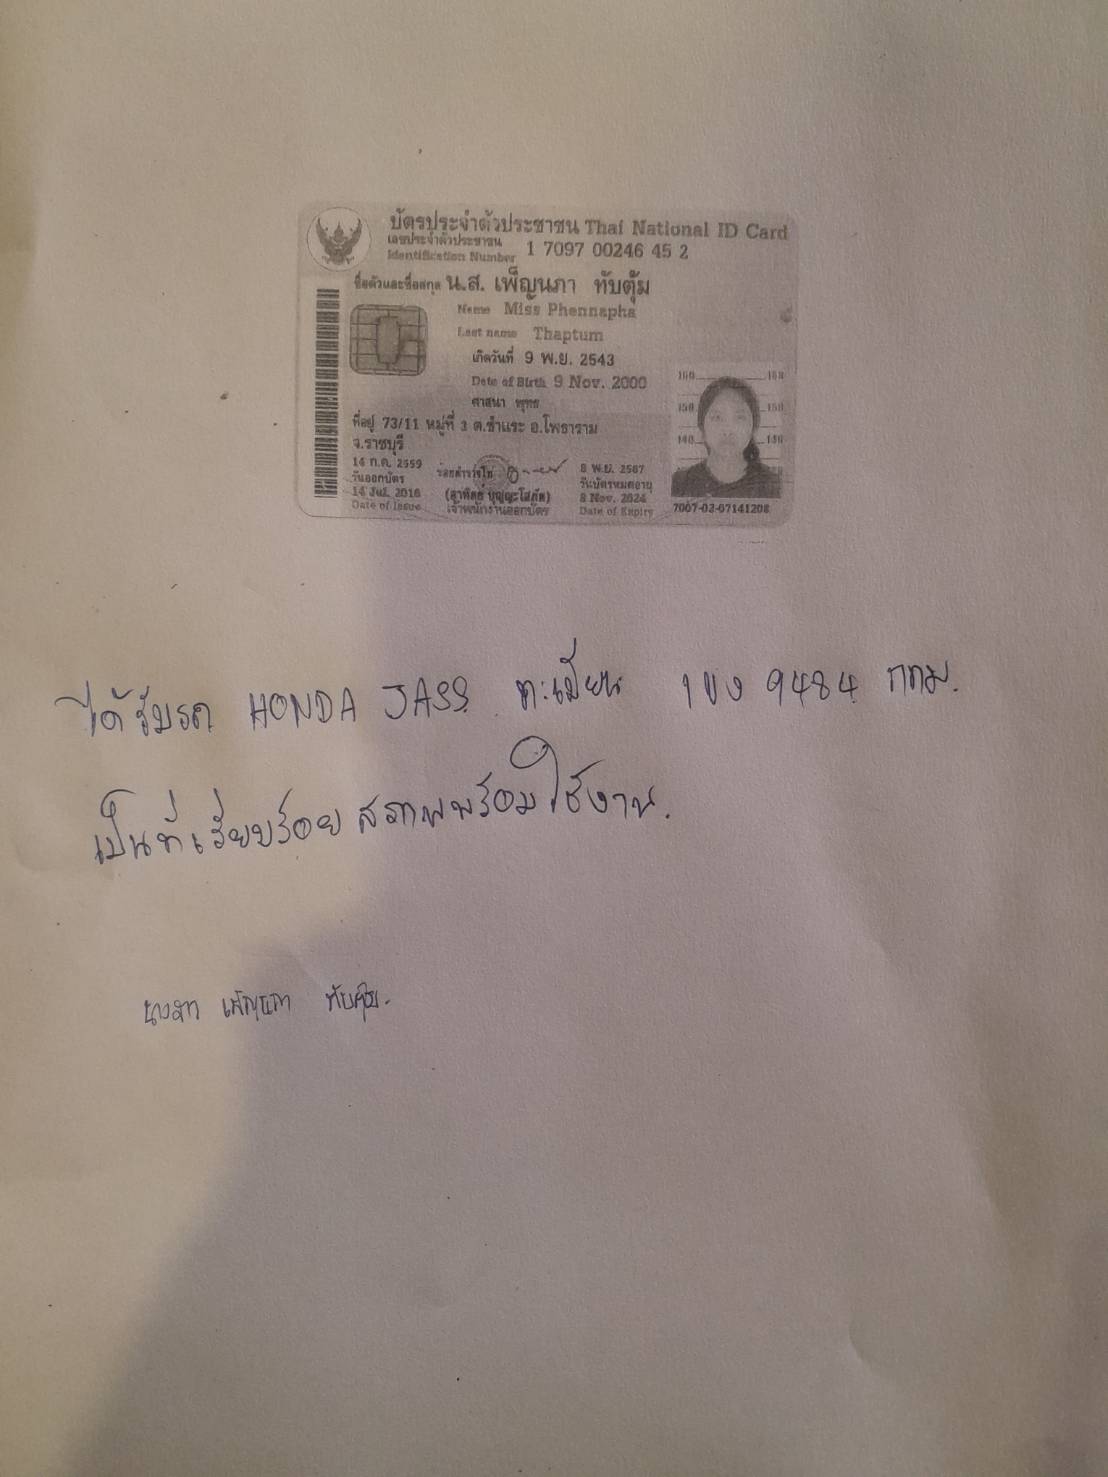 บัตรประจำตัวประชาชน Thai National ID Card
เลขประจำตัวประชาชน
Identification Number 1 7097 00246 45 2
ชื่อตัวและชื่อสกุล น.ส. เพ็ญนภา ทับตุ้ม
Name Miss Phennapha
Last name Thaptum
เกิดวันที่ 9 พ.ย. 2543
Date of Birth 9 Nov. 2000
ศาสนา พุทธ
ที่อยู่ 73/11 หมู่ที่ 3 ต.ชำแระ อ.โพธาราม
จ.ราชบุรี
14 ก.ค. 2559
วันออกบัตร
14 Jul. 2016
Date of Issue
(อาทิตย์ บุญญะโสภัต)
เจ้าพนักงานออกบัตร
8 พ.ย. 2567
วันบัตรหมดอายุ
8 Nov. 2024
Date of Expiry
160 160
150 150
140 140
7007-03-07141208
ได้รับรถ HONDA JASS ทะเบียน 1ขง 9484 กทม.
เป็นที่เรียบร้อย สภาพพร้อมใช้งาน.
นางสาว เพ็ญนภา ทับตุ้ม.